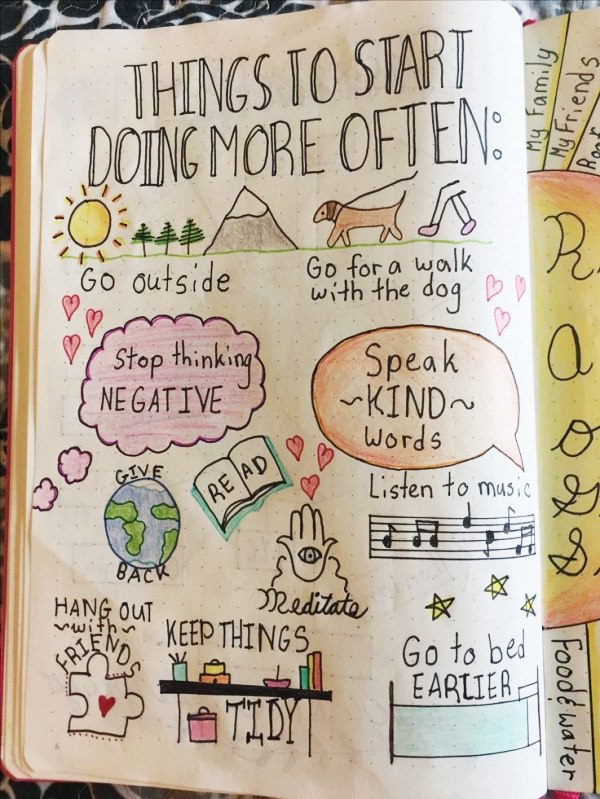 THINGS TO START
DOING MORE OFTEN:
Go outside
Go for a walk
with the dog
Stop thinking
NEGATIVE
Speak
~KIND~
Words
GIVE
BACK
READ
Listen to music
Meditate
HANG OUT
~with~
FRIENDS
KEEP THINGS
TIDY
Go to bed
EARLIER
6
My Family
My Friends
Food & water